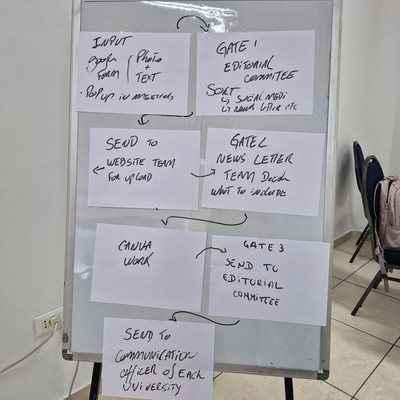 INPUT
google FORM { Photo + TEXT
• POP UP IN MEETINGS
GATE 1
EDITORIAL
COMMITTEE
SORT
↳ SOCIAL MEDI
↳ NEWS LETTER etc
SEND TO
WEBSITE TEAM
FOR UPLOAD
GATE 2
NEWS LETTER
TEAM Decide
WHAT TO INCLUDE
CANVA
WORK
GATE 3
SEND TO
EDITORIAL
COMMITTEE
SEND TO
COMMUNICATION
OFFICER OF EACH
UNIVERSITY